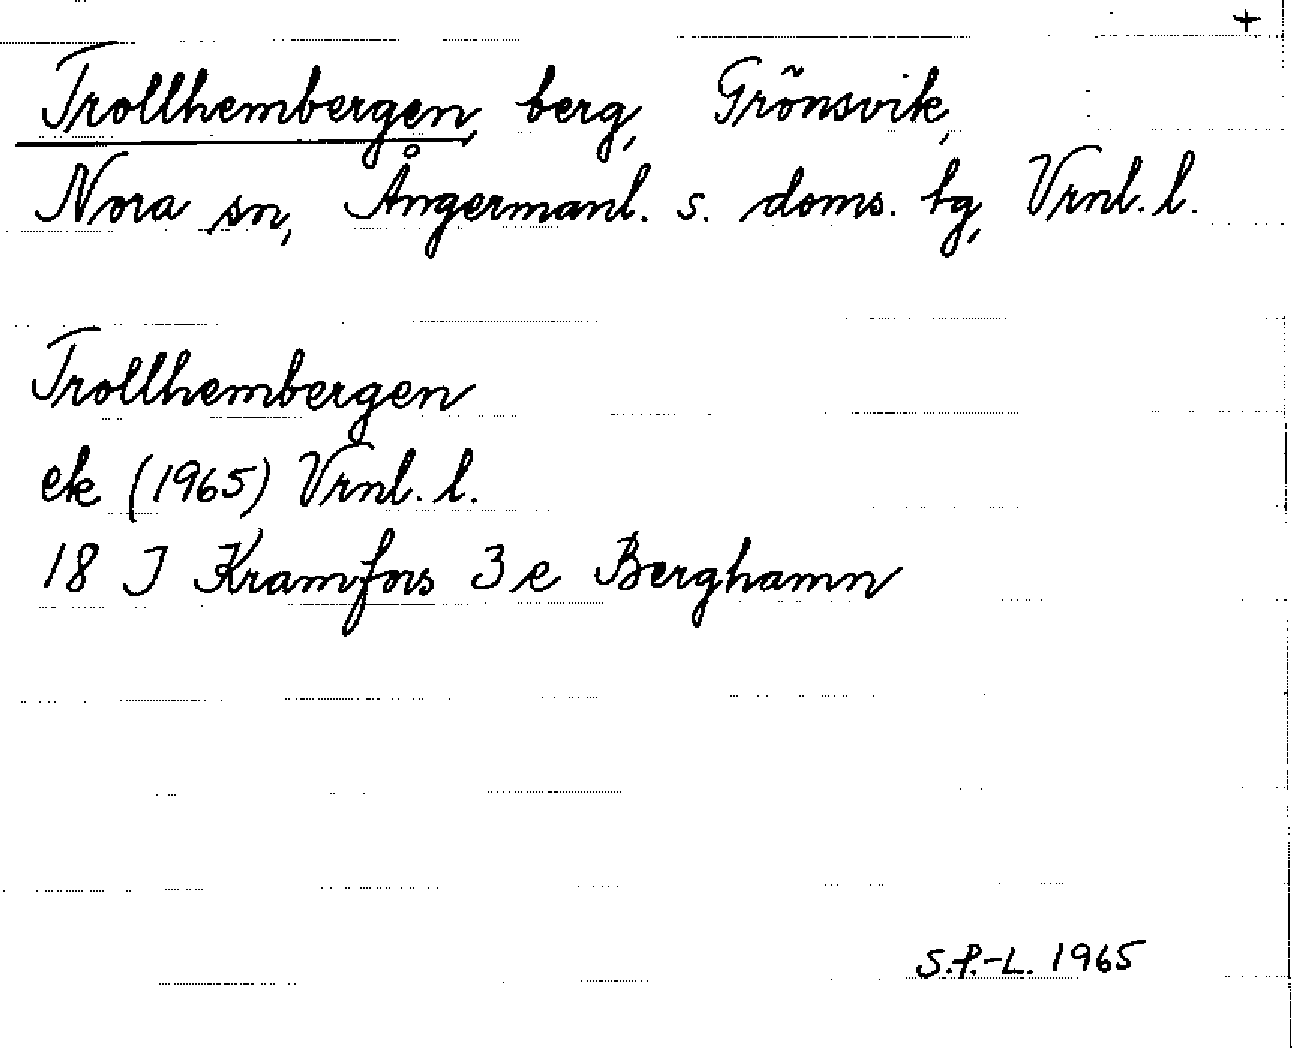 +
Trollhembergen, berg, Grönsvik,
Nora sn, Ångermanl. s. doms. tg, Vrnl. l.
Trollhembergen
ek (1965) Vrnl. l.
18 J Kramfors 3 e Berghamn
S.P.-L. 1965